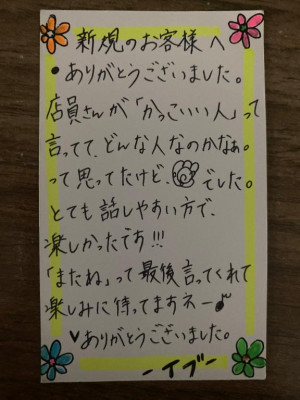 新規のお客様へ
•ありがとうございました。
店員さんが「かっこいい人」って
言ってて、どんな人なのかなぁ。
って思ってたけど、でした。
とても話しやすい方で、
楽しかったです!!!
「またね」って最後言ってくれて
楽しみに待ってますネー♪
♥ありがとうございました。
ーイブー